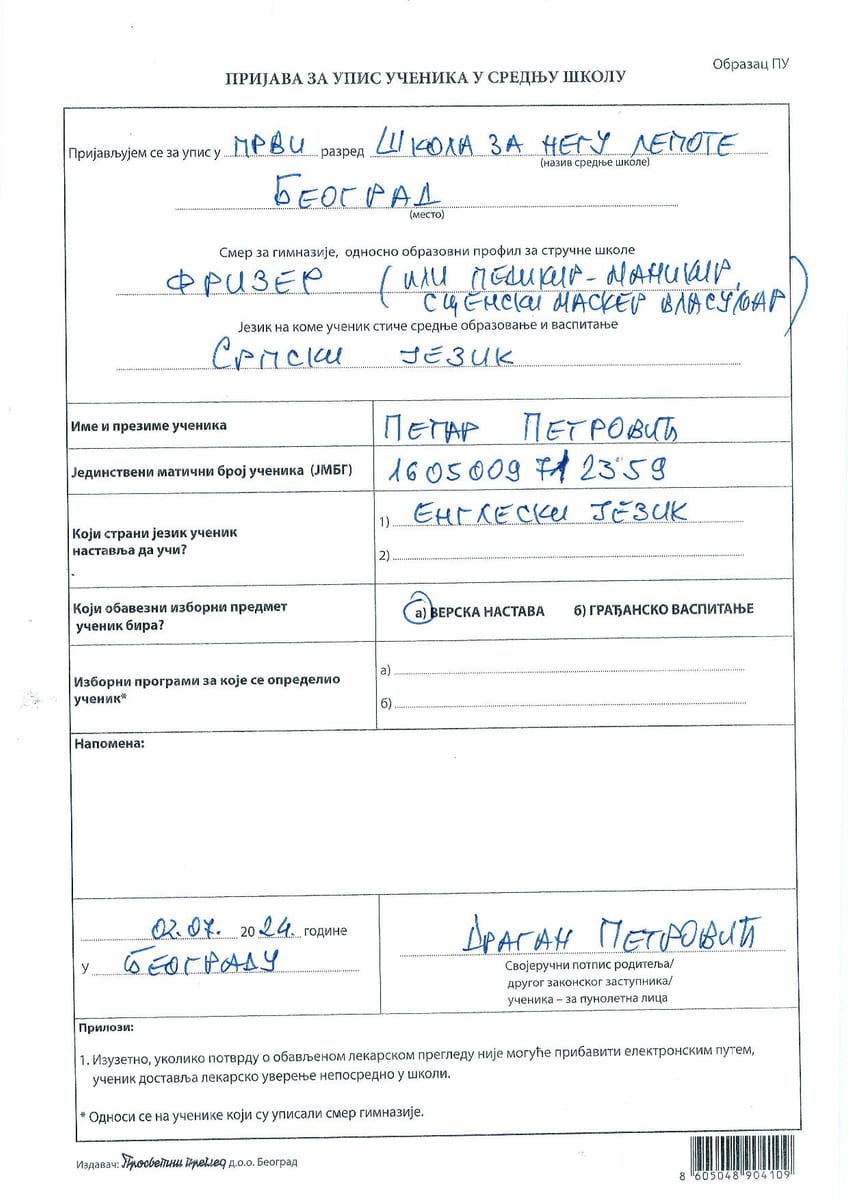 Образац ПУ
ПРИЈАВА ЗА УПИС УЧЕНИКА У СРЕДЊУ ШКОЛУ
Пријављујем се за упис у ПРВИ разред ШКОЛА ЗА НЕГУ ЛЕПОТЕ
(назив средње школе)
БЕОГРАД
(место)
Смер за гимназије, односно образовни профил за стручне школе
ФРИЗЕР (ИЛИ ПЕДИКИР-МАНИКИР,
СЦЕНСКИ МАСКЕР ВЛАСУЉАР)
Језик на коме ученик стиче средње образовање и васпитање
СРПСКИ ЈЕЗИК
Име и презиме ученика ПЕТАР ПЕТРОВИЋ
Јединствени матични број ученика (ЈМБГ) 1605009712359
Који страни језик ученик
наставља да учи?
1) ЕНГЛЕСКИ ЈЕЗИК
2)
Који обавезни изборни предмет
ученик бира?
а) ВЕРСКА НАСТАВА б) ГРАЂАНСКО ВАСПИТАЊЕ
Изборни програми за које се определио
ученик*
а)
б)
Напомена:
02.07. 2024. године
У БЕОГРАДУ
ДРАГАН ПЕТРОВИЋ
Својеручни потпис родитеља/
другог законског заступника/
ученика – за пунолетна лица
Прилози:
1. Изузетно, уколико потврду о обављеном лекарском прегледу није могуће прибавити електронским путем,
ученик доставља лекарско уверење непосредно у школи.
* Односи се на ученике који су уписали смер гимназије.
Издавач: Просветни преглед д.о.о. Београд
8 605048 904109